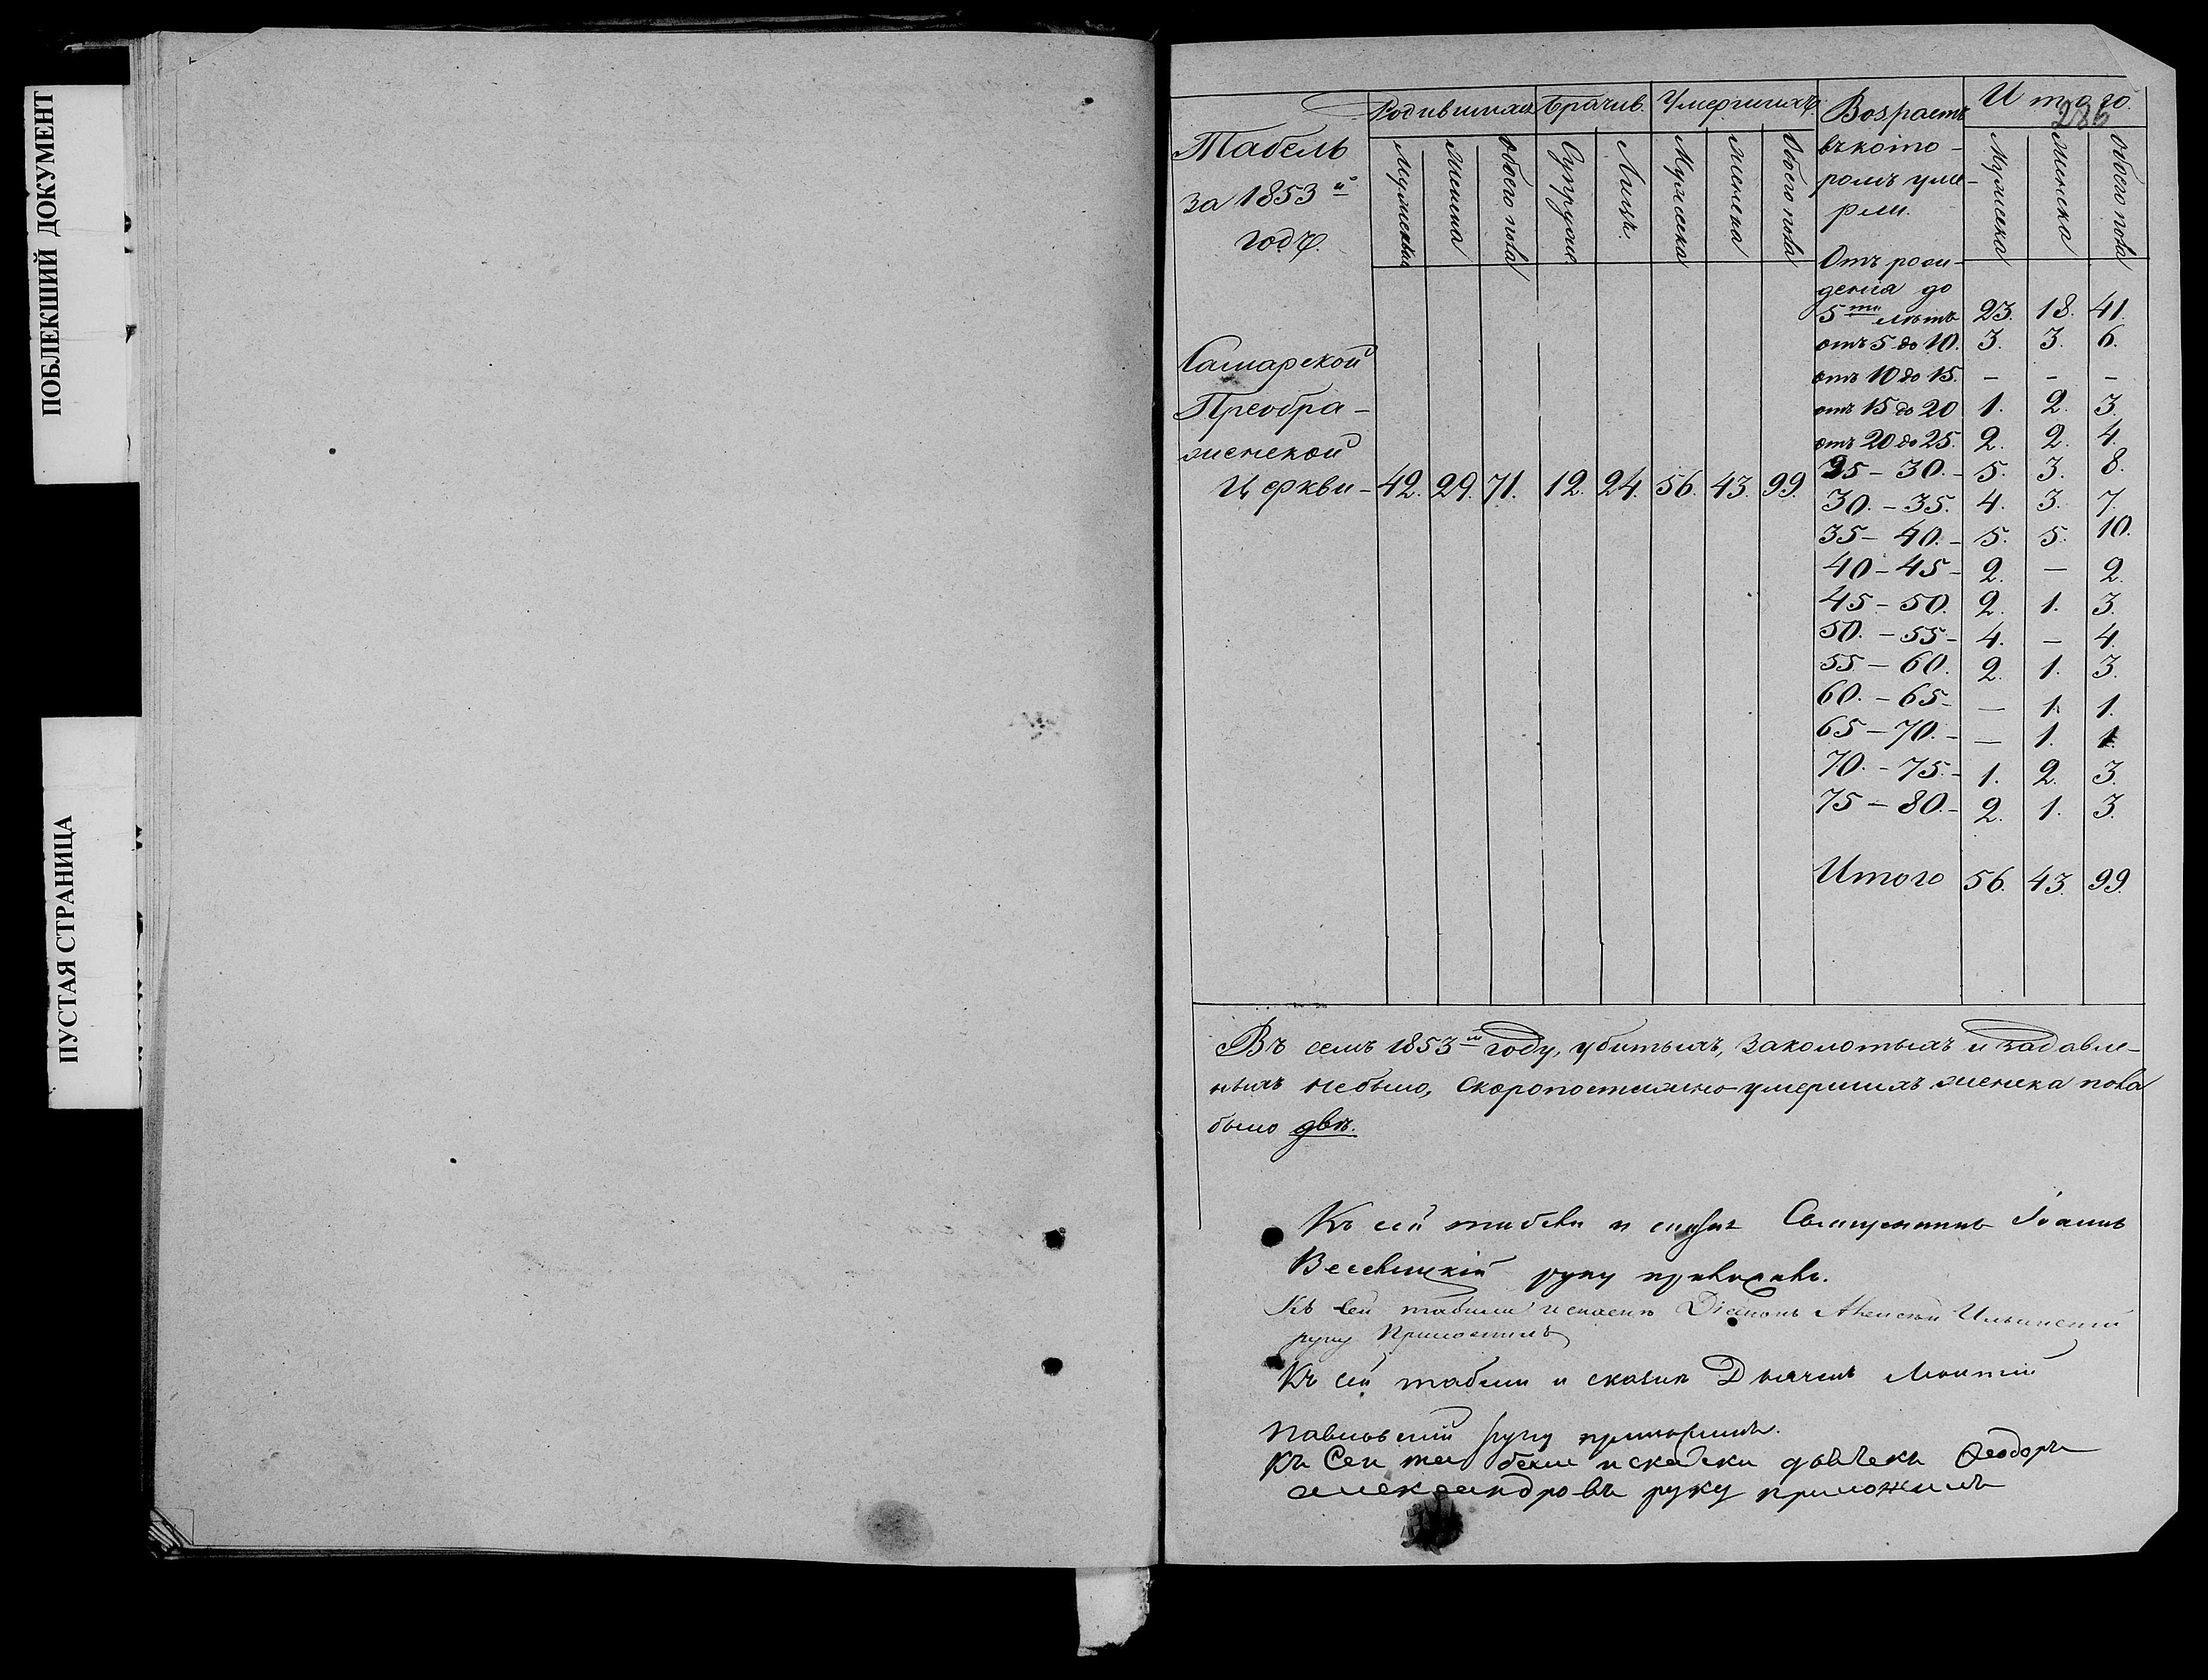 ПОБЛЕКШИЙ ДОКУМЕНТ
ПУСТАЯ СТРАНИЦА
286
Табель
за 1853й
годъ.
Родившихся Браков. Умершихъ. Возрастъ Итого.
въ кото-
ромъ уме-
рли.
Мужеска Женска Обоего пола Супружие. Лицъ. Мужеска Женска Обоего пола Мужеска Женска Обоего пола
Отъ рож-
денія до
5ти летъ 23. 18. 41.
отъ 5 до 10. 3. 3. 6.
отъ 10 до 15. – – –
отъ 15 до 20 1. 2. 3.
отъ 20 до 25. 2. 2. 4.
Самарской
Преобра-
женской
Церкви – 42. 29. 71. 12. 24. 56. 43. 99.
25 – 30. – 5. 3. 8.
30. – 35. 4. 3. 7.
35 – 40. – 5. 5. 10.
40 – 45 – 2. – 2.
45 – 50. 2. 1. 3.
50. – 55 – 4. – 4.
55 – 60. 2. 1. 3.
60. – 65 – – 1. 1.
65 – 70. – – 1. 1.
70. – 75. – 1. 2. 3.
75 – 80. – 2. 1. 3.
Итого 56. 43. 99.
Въ семъ 1853м году, убитыхъ, заколотыхъ и задавле-
ныхъ небыло, скоропостижно умершихъ женска пола
было двѣ.
Къ сей табели и сказкѣ Священникъ Іоаннъ
руку приложилъ.
Къ сей табели и сказкѣ Діаконъ Алексѣй Ильинскій
руку Приложилъ
Къ сей табели и сказкѣ Дьячекъ
Павловскій руку приложилъ.
Къ Сей табели и скаски дьячекъ Феодоръ
александровъ руку приложилъ